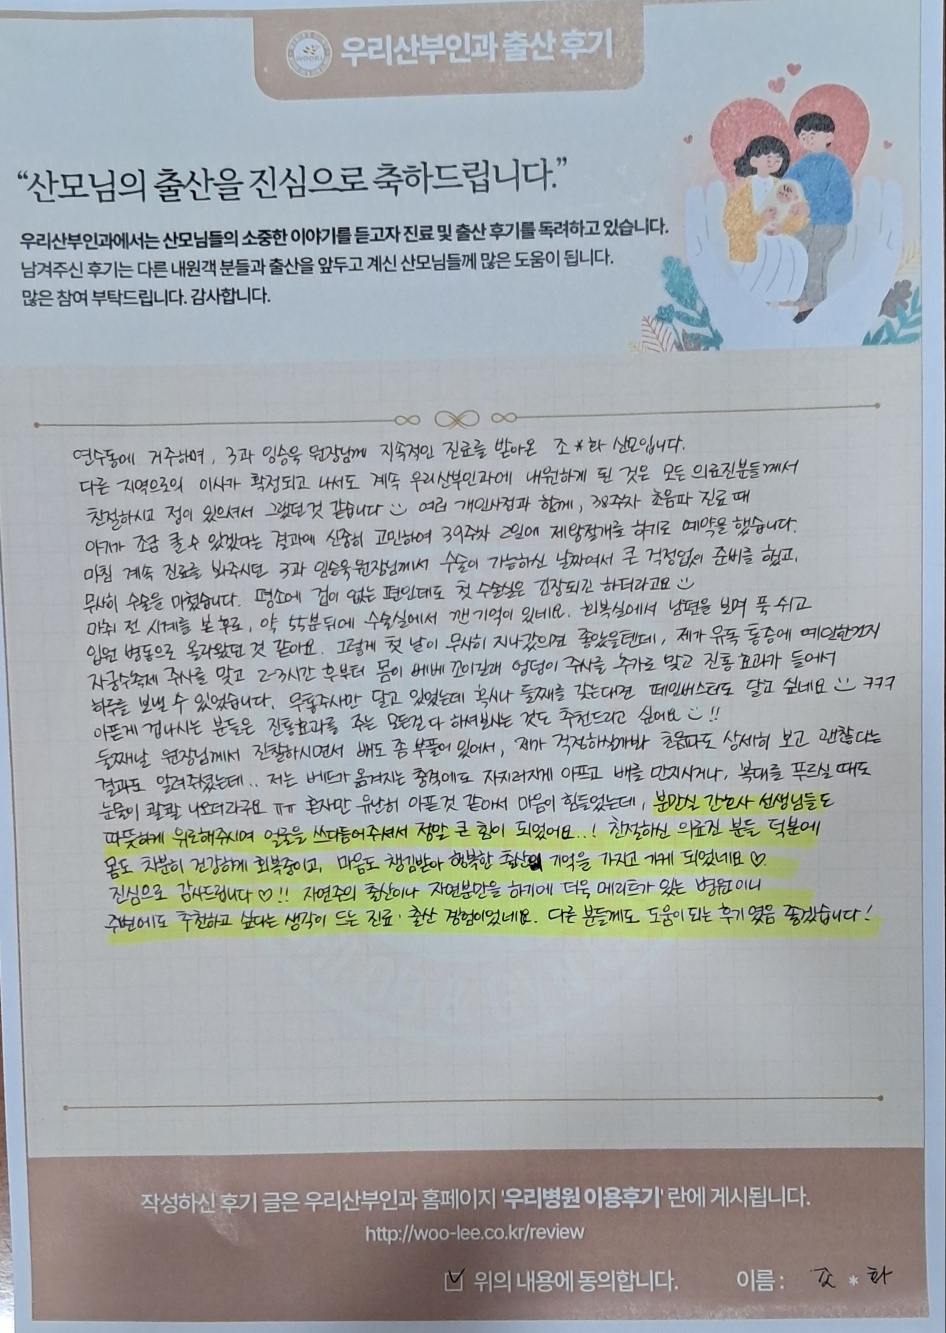 우리산부인과 출산 후기
“산모님의 출산을 진심으로 축하드립니다.”
우리산부인과에서는 산모님들의 소중한 이야기를 듣고자 진료 및 출산 후기를 독려하고 있습니다.
남겨주신 후기는 다른 내원객 분들과 출산을 앞두고 계신 산모님들께 많은 도움이 됩니다.
많은 참여 부탁드립니다. 감사합니다.
연수동에 거주하며, 3과 임승욱 원장님께 지속적인 진료를 받아온 조*화 산모입니다.
다른 지역으로의 이사가 확정되고 나서도 계속 우리산부인과에 내원하게 된 것은 모든 의료진분들께서
친절하시고 정이 있으셔서 그랬던 것 같습니다 여러 개인사정과 함께, 38주차 초음파 진료 때
아기가 조금 클 수 있겠다는 결과에 신중히 고민하여 39주차 2일에 제왕절개를 하기로 예약을 했습니다.
마침 계속 진료를 봐주시던 3과 임승욱원장님께서 수술이 가능하신 날짜여서 큰 걱정없이 준비를 했고,
무사히 수술을 마쳤습니다. 평소에 겁이 없는 편인데도 첫 수술실은 긴장되긴 하더라고요
마취 전 시계를 본 후로, 약 55분뒤에 수술실에서 깬 기억이 있네요. 회복실에서 남편을 보며 푹 쉬고
입원 병동으로 올라왔던 것 같아요. 그렇게 첫 날이 무사히 지나갔으면 좋았을텐데, 제가 유독 통증에 예민한건지
자궁수축제 주사를 맞고 2-3시간 후부터 몸이 베베 꼬이길래 엉덩이 주사를 추가로 맞고 진통효과가 들어서
하루를 보낼 수 있었습니다. 무통주사만 달고 있었는데 혹시나 둘째를 갖는다면 페인버스터도 달고 싶네요 ㅋㅋㅋ
아픈게 겁나시는 분들은 진통효과를 주는 모든걸 다 하셔보시는 것도 추천드리고 싶어요 !!
둘째날 원장님께서 진찰하시면서 배도 좀 부풀어 있어서, 제가 걱정하실까봐 초음파도 상세히 보고 괜찮다는
결과도 알려주셨는데.. 저는 베드가 옮겨지는 충격에도 자지러지게 아프고 배를 만지시거나, 복대를 푸르실 때도
눈물이 콸콸 나오더라구요 ㅠㅠ 혼자만 유난히 아픈것 같아서 마음이 힘들었는데, 분만실 간호사 선생님들도
따뜻하게 위로해주시며 얼굴을 쓰다듬어주셔서 정말 큰 힘이 되었어요..! 친절하신 의료진 분들 덕분에
몸도 차분히 건강하게 회복중이고, 마음도 챙김받아 행복한 출산의 기억을 가지고 가게 되었네요 ♡.
진심으로 감사드립니다 ♡!! 자연주의 출산이나 자연분만을 하기에 더욱 메리트가 있는 병원이니
주변에도 추천하고 싶다는 생각이 드는 진료·출산 경험이었네요. 다른 분들께도 도움이 되는 후기였음 좋겠습니다!
작성하신 후기 글은 우리산부인과 홈페이지 '우리병원 이용후기' 란에 게시됩니다.
http://woo-lee.co.kr/review
위의 내용에 동의합니다. 이름 : 조 * 화